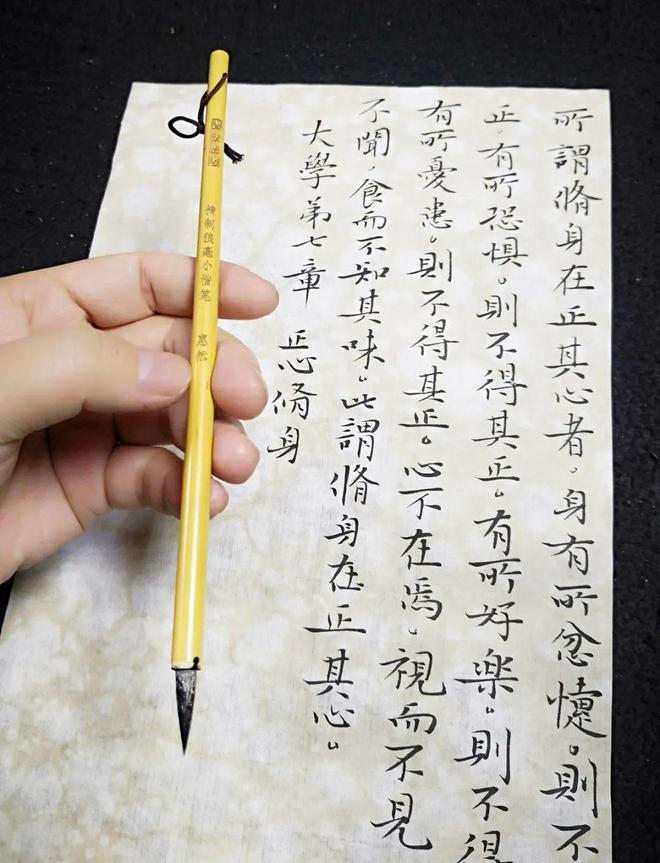 所謂脩身在正其心者。身有所忿懥。則不
正。有所恐惧。則不得其正。有所好樂。則不得
有所憂患。則不得其正。心不在焉。視而不見
不聞。食而不知其味。此謂脩身在正其心。
大學第七章 正心脩身
精制狼毫小楷笔